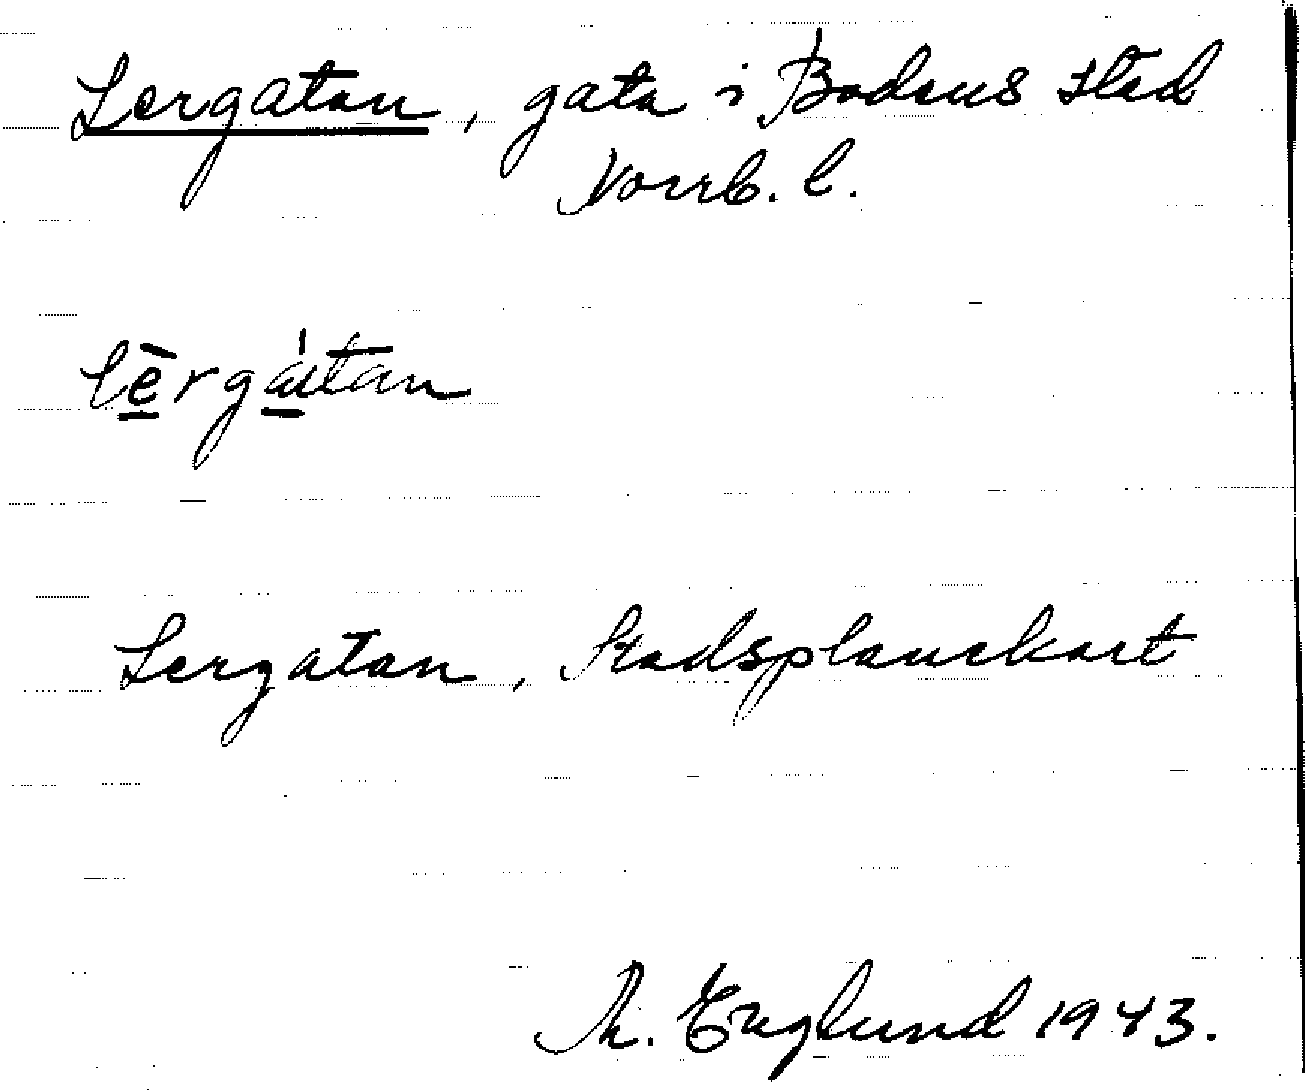 Lergatan, gata i Bodens stad
Norrb. l.
lērgátan
Lergatan, Stadsplanekart
M. Englund 1943.